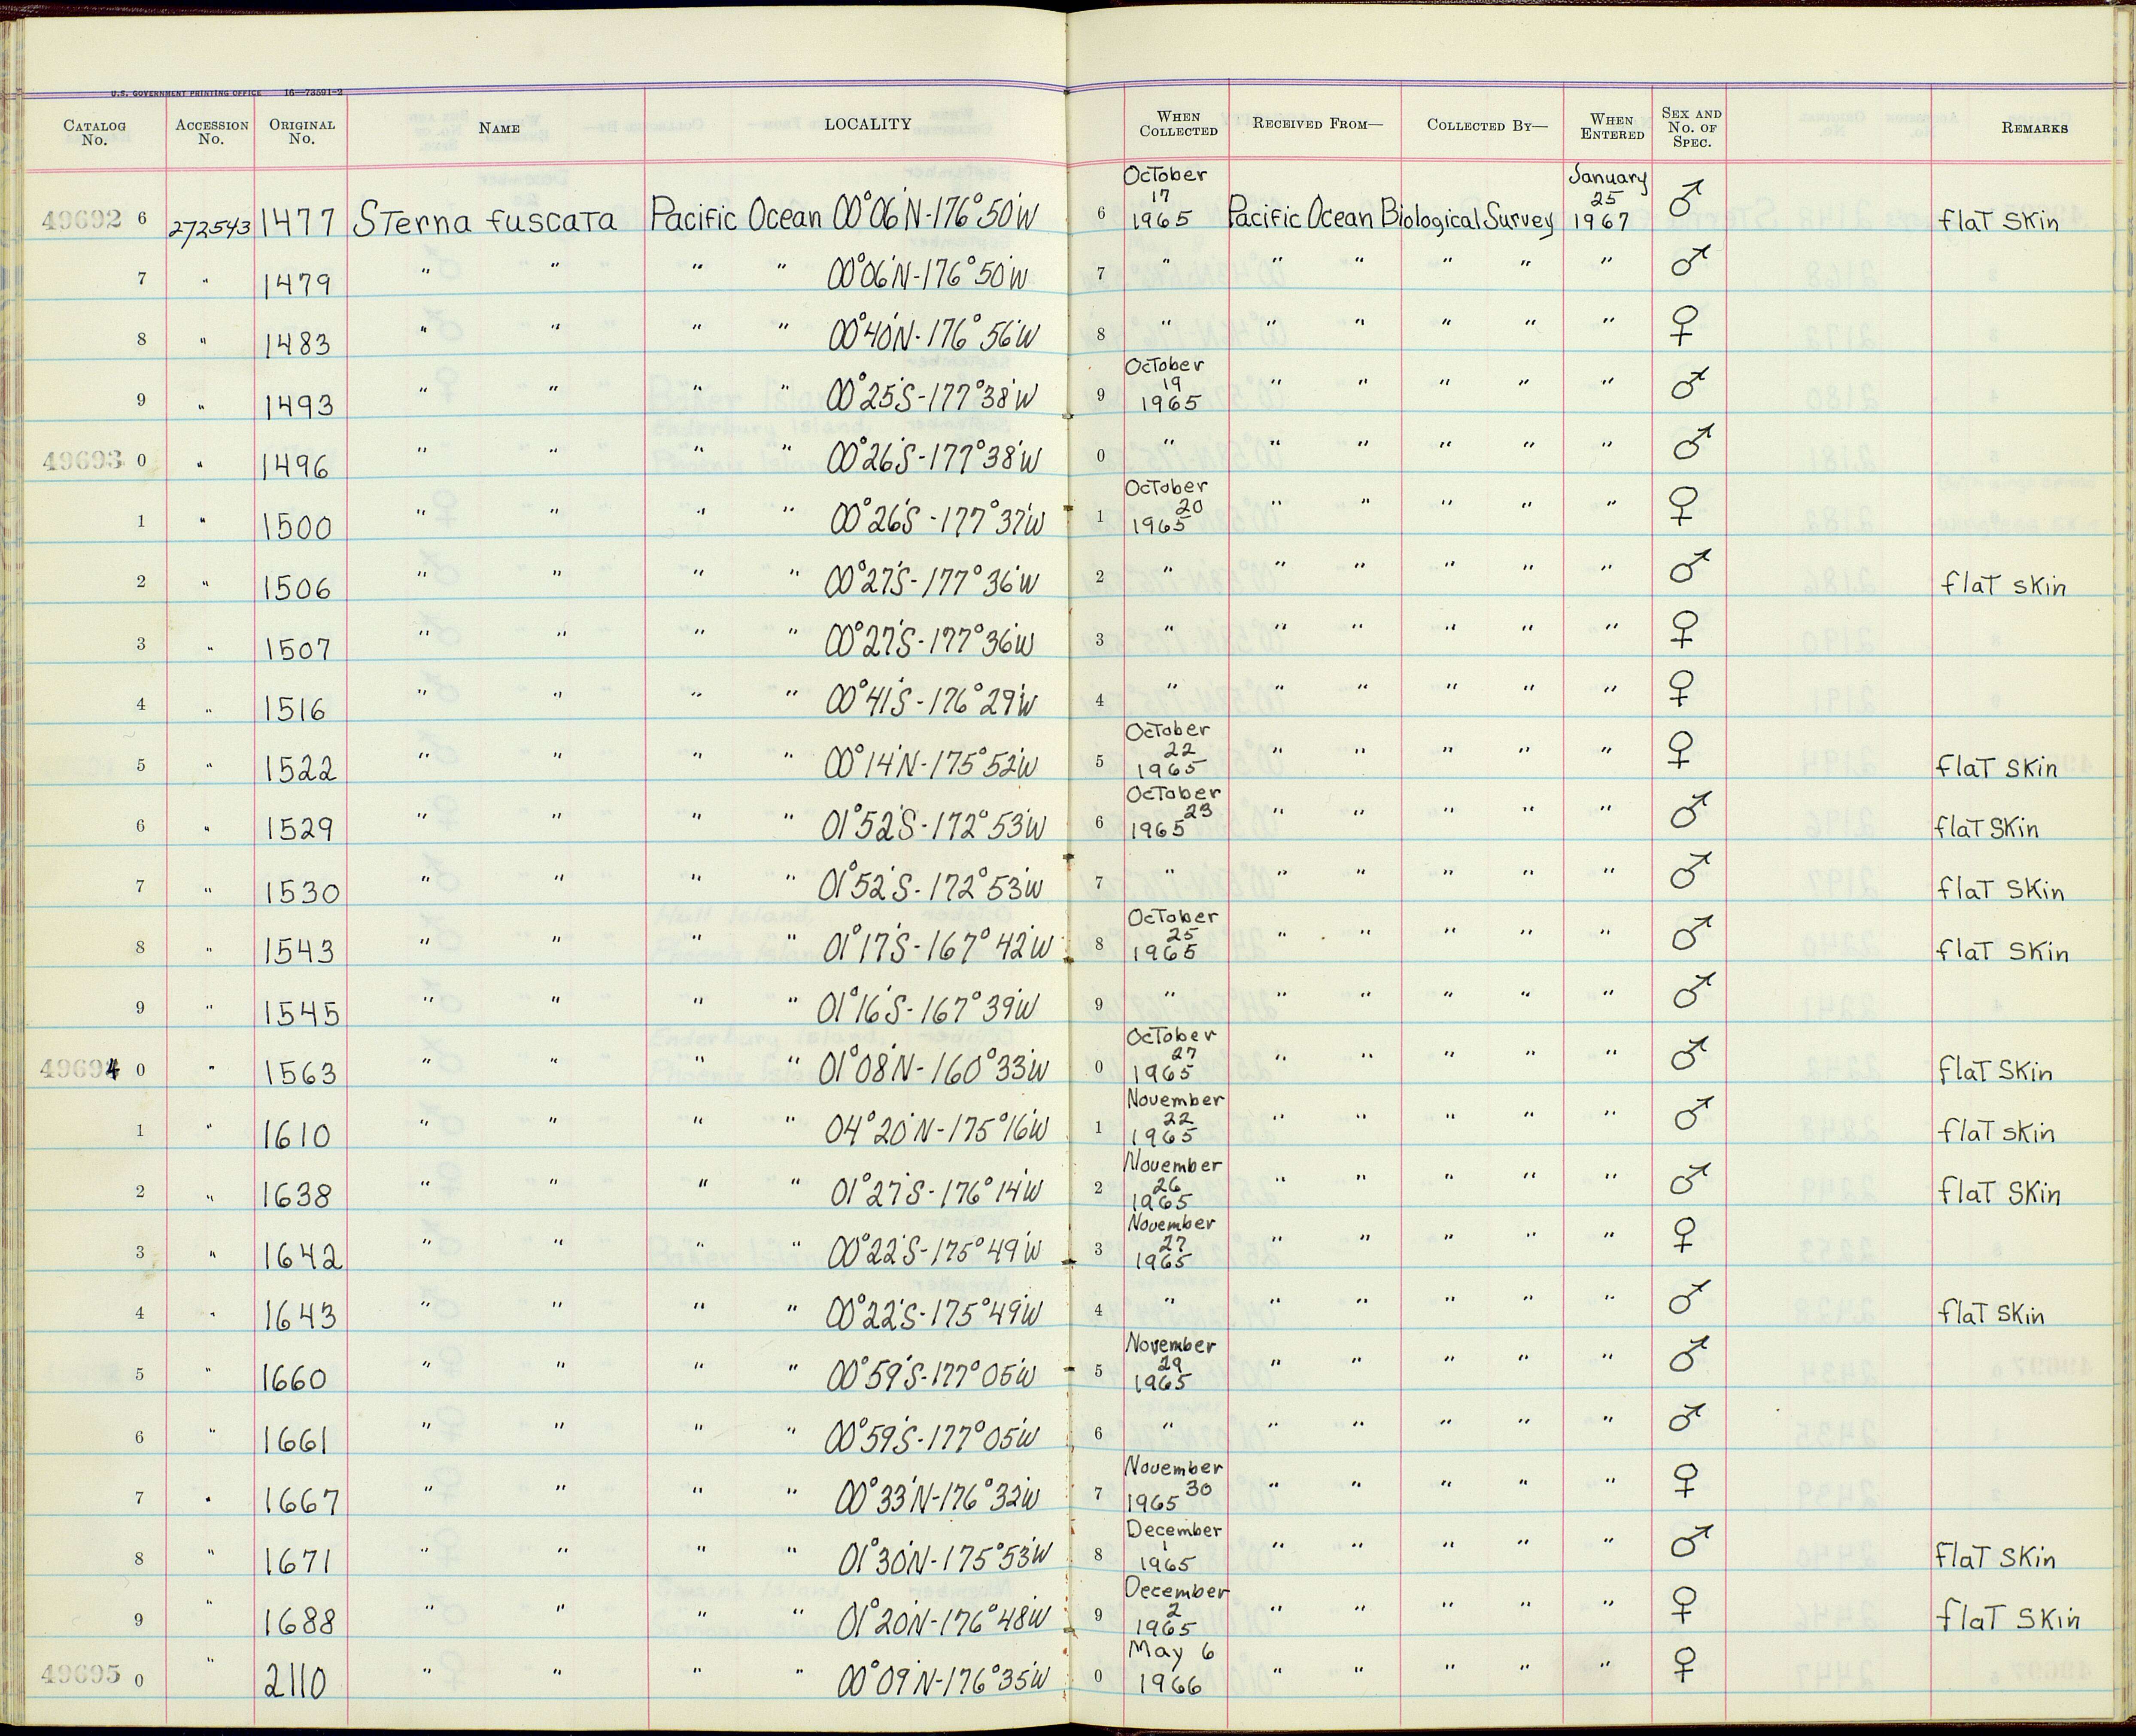 U.S. GOVERNMENT PRINTING OFFICE 16—73591-2
CATALOG No. ACCESSION No. ORIGINAL No. NAME LOCALITY WHEN COLLECTED RECEIVED FROM— COLLECTED BY— WHEN ENTERED SEX AND No. OF SPEC. REMARKS
49692 6 272543 1477 Sterna fuscata Pacific Ocean 00°06'N-176°50'W 6 October 17 1965 Pacific Ocean Biological Survey January 25 1967 ♂ flat skin
7 " 1479 " " " " 00°06'N-176°50'W 7 " " " " " " ♂
8 " 1483 " " " " 00°40'N-176°56'W 8 " " " " " " ♀
9 " 1493 " " " " 00°25'S-177°38'W 9 October 19 1965 " " " " " ♂
49693 0 " 1496 " " " " 00°26'S-177°38'W 0 " " " " " " ♂
1 " 1500 " " " " 00°26'S-177°37'W 1 October 20 1965 " " " " " ♀
2 " 1506 " " " " 00°27'S-177°36'W 2 " " " " " " ♂ flat skin
3 " 1507 " " " " 00°27'S-177°36'W 3 " " " " " " ♀
4 " 1516 " " " " 00°41'S-176°29'W 4 " " " " " " ♀
5 " 1522 " " " " 00°14'N-175°52'W 5 October 22 1965 " " " " " ♀ flat skin
6 " 1529 " " " " 01°52'S-172°53'W 6 October 23 1965 " " " " " ♂ flat skin
7 " 1530 " " " " 01°52'S-172°53'W 7 " " " " " " ♂ flat skin
8 " 1543 " " " " 01°17'S-167°42'W 8 October 25 1965 " " " " " ♂ flat skin
9 " 1545 " " " " 01°16'S-167°39'W 9 " " " " " " ♂
49694 0 " 1563 " " " " 01°08'N-160°33'W 0 October 27 1965 " " " " " ♂ flat skin
1 " 1610 " " " " 04°20'N-175°16'W 1 November 22 1965 " " " " " ♂ flat skin
2 " 1638 " " " " 01°27'S-176°14'W 2 November 26 1965 " " " " " ♂ flat skin
3 " 1642 " " " " 00°22'S-175°49'W 3 November 27 1965 " " " " " ♀
4 " 1643 " " " " 00°22'S-175°49'W 4 " " " " " " ♂ flat skin
5 " 1660 " " " " 00°59'S-177°05'W 5 November 29 1965 " " " " " ♂
6 " 1661 " " " " 00°59'S-177°05'W 6 " " " " " " ♂
7 " 1667 " " " " 00°33'N-176°32'W 7 November 30 1965 " " " " " ♀
8 " 1671 " " " " 01°30'N-175°53'W 8 December 1 1965 " " " " " ♂ flat skin
9 " 1688 " " " " 01°20'N-176°48'W 9 December 2 1965 " " " " " ♀ flat skin
49695 0 " 2110 " " " " 00°09'N-176°35'W 0 May 6 1966 " " " " " ♀